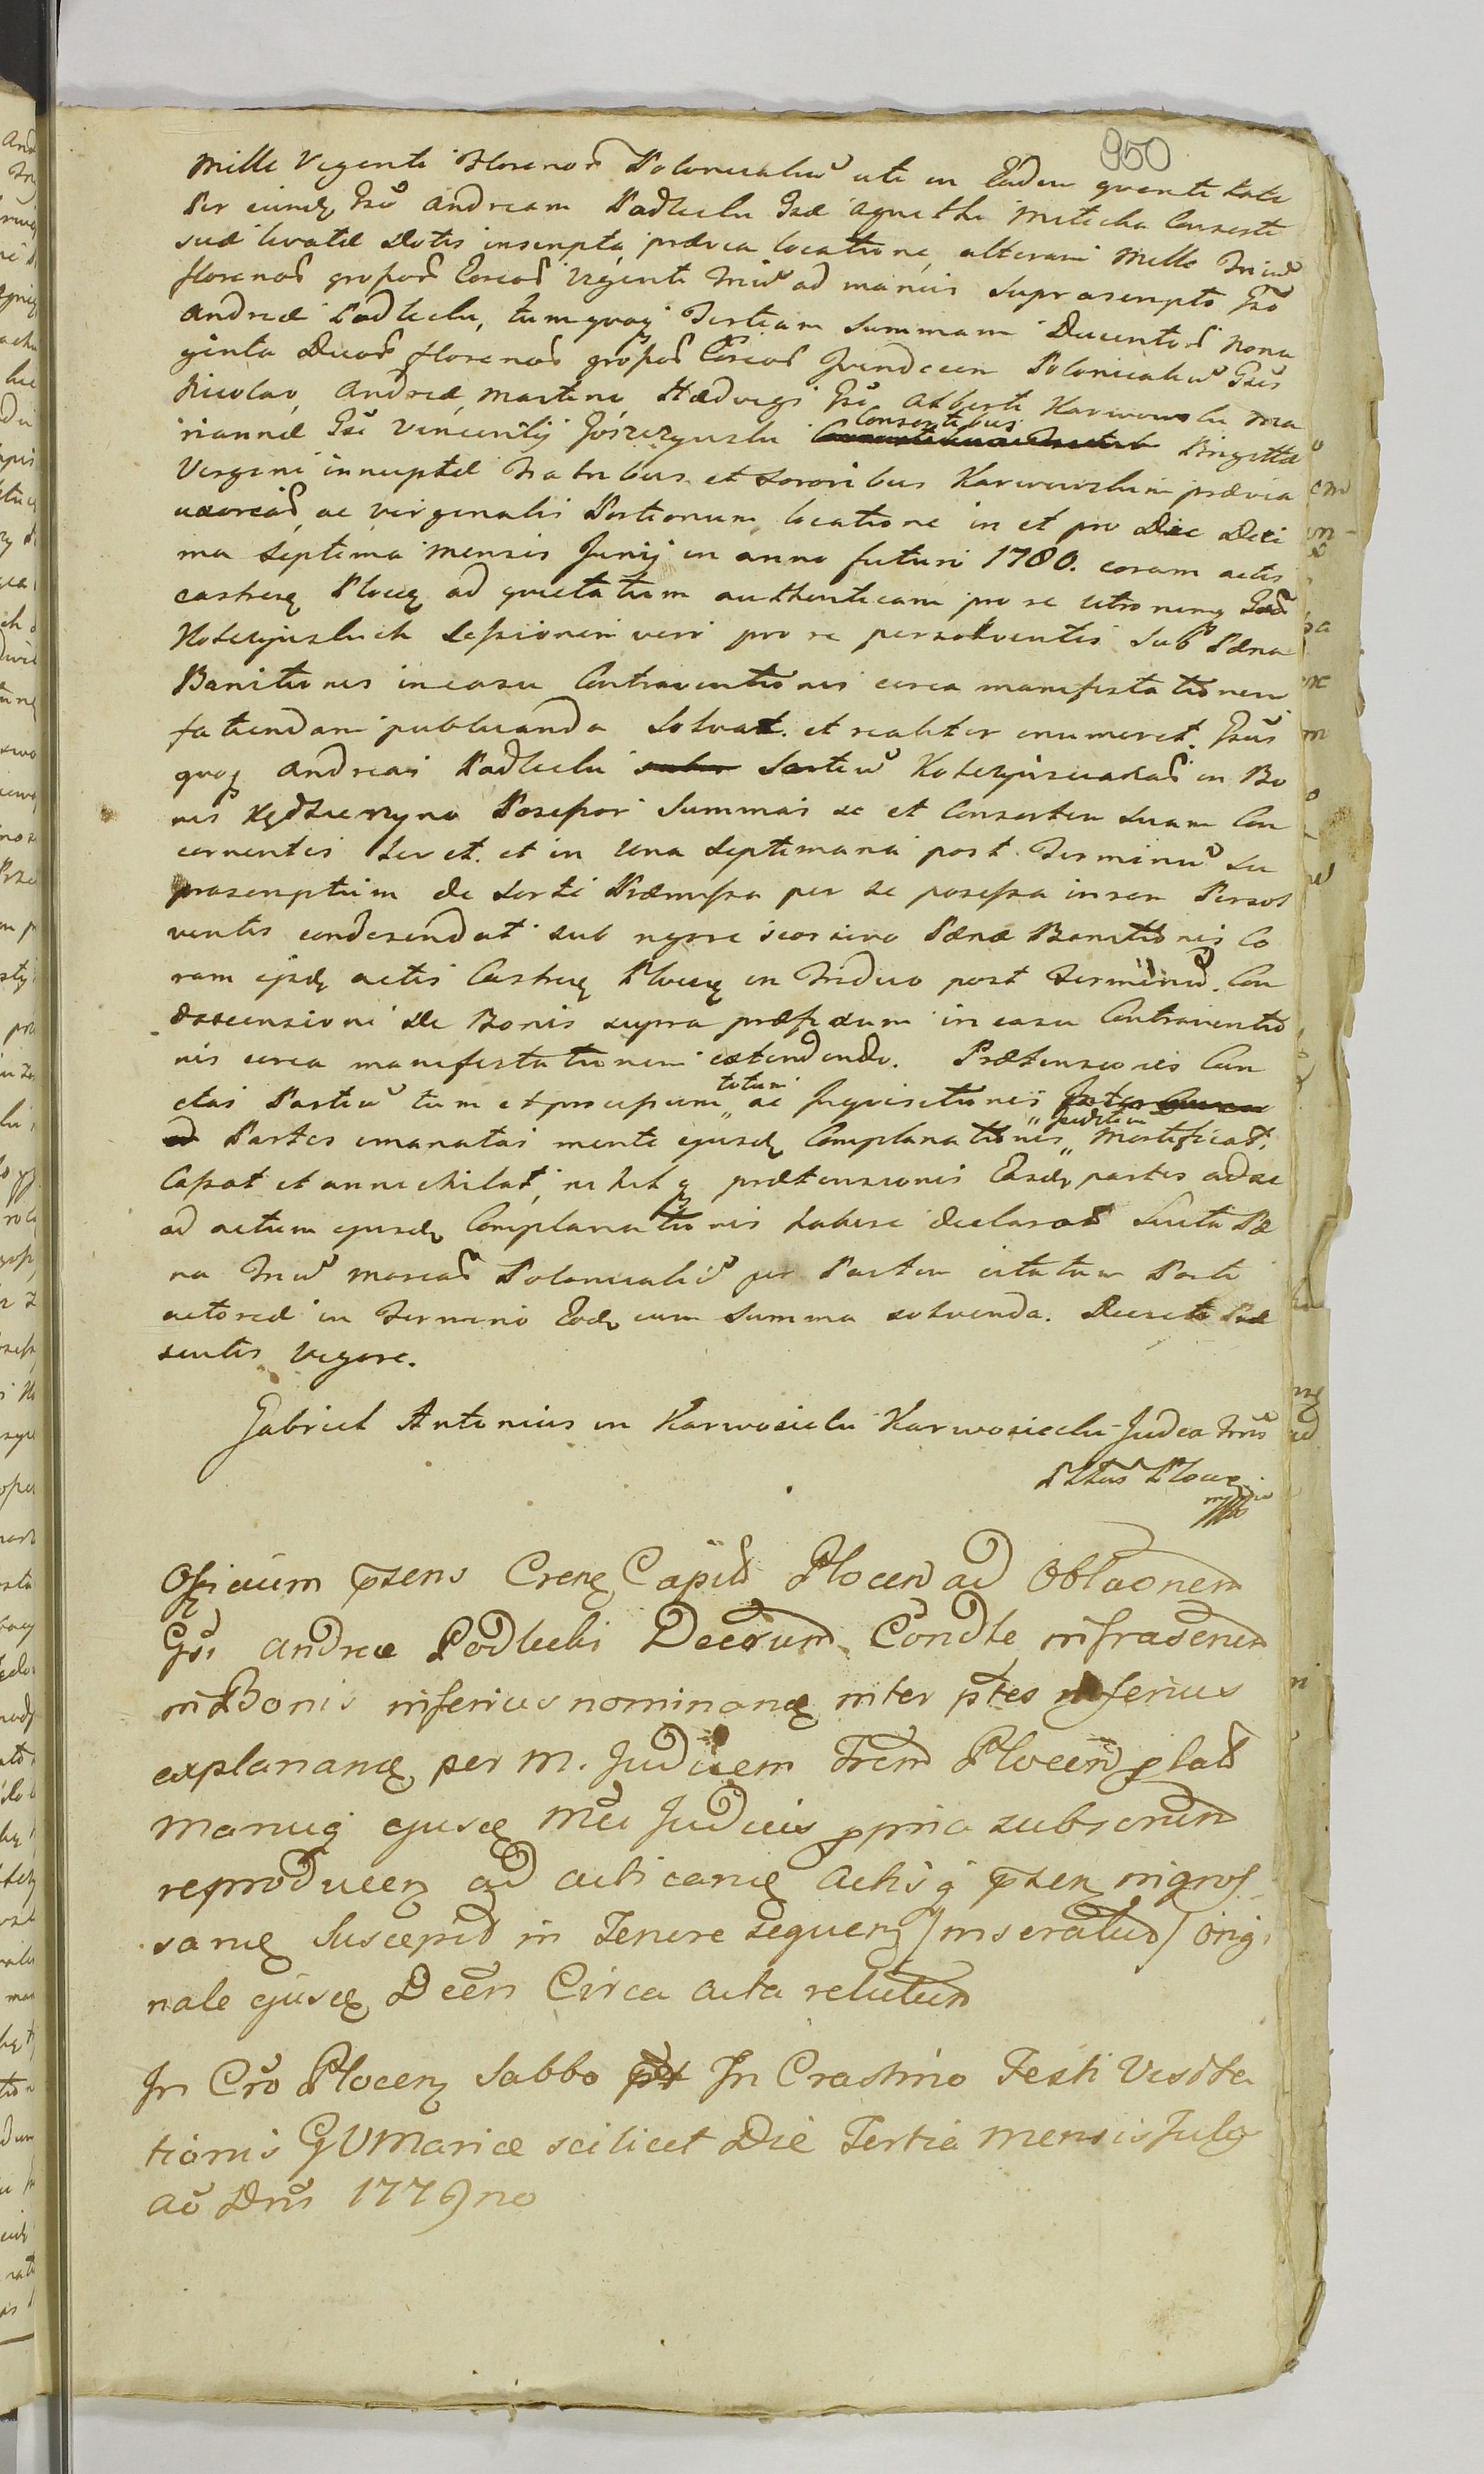 950
Mille Vigenti Florenos Polonicaliu uti in Eadem
Per eundę Gso Andream Podlecki Gsæ Agnethæ Mīlecka Consorti
suæ levatæ Dotis inscripta, prævia locatione, alteram Mille Trium
florenos grossos Vigenti Triu ad manus suprascripto Gso
Andreæ Podlecki, tumquoq Tertiam summam Ducentos Nona
ginta Duos florenos grossos Quindecem Polonicaliu Gsis
Nicolao, Andreæ, Martino Hedvigi Gsi Alberti Karwowski Ma
riannæ Gsi Vincentij Goszczynski Consortibus Brigittæ
Virgini innuptæ Fratribus et Sororibus Karwowskim prævia
uxoreas, ac virginalis Portionum locatione in et pro Die Deci
ma Septima Mensis Junij in anno futuri 1780. coram actis
castreę Plocę ad quietatum authenticam pro se
sessionem vero pro re persolventis sub Pæna
Banitionis incasu Contraventionis circa manifestationem
fatiendam publicanda Solvat. et realiter enumeret. Gsus
quoq Andreas Podlecki Sortiu in Bo
nis Possessor Summas se et Consortem suam Con
cernentes levet. et in una Septimana post Terminu Su
prascriptum de Sorte Præmissa per se possessa inrem Persol
ventis condescendat sub Pænæ Banitionis Co
ram ijsdę actis Castreę Plocę in Triduo post Terminu. Con
descensioni De Bonis supra præfixum in casu Contraventio
nis circa manifestationem extendendo. Prætensiones Cun
ctas Partiu tum et processum totum ac Inquisitiones
Partes emanatas mente ejusdę Complanationis Mortificat,
Cassat et annichilat, nihilq prætensionis Easdę partes adse
ad actum ejusdę Complanationis habere declarat Pæ
na Triu marcas Polonicaliu per Partem citatam Parti
actoreæ in Termino Eodę cum Summa solvenda. Decreti Præ
sentis Vigore.
Gabriel Antonius in Karwosieki Karwosiecki Judex Trris
Pltus Plocę
mpp
Officium pzens Crenę Capit Plocen ad Oblaonem
Gsi Andreæ Podlecki Decrum Condle infrascren
in Bonis inferius nominanę inter ptes inferius
explananę per M. Judicem Trem Plocen plat
manuq ejusdę Mci Judicis ppria subscrum
reproducenę ad acticanę Actisq pzenę ingros
sanę Suscepit in Tenore sequenę /inseratum/ origi
nale ejusdę Decri Circa acta relictum
In Cro Plocenę Sabbo In Crastino Festi Visita
tionis GVMariæ scilicet Die Tertia Mensis July
Ao Dni 1779no